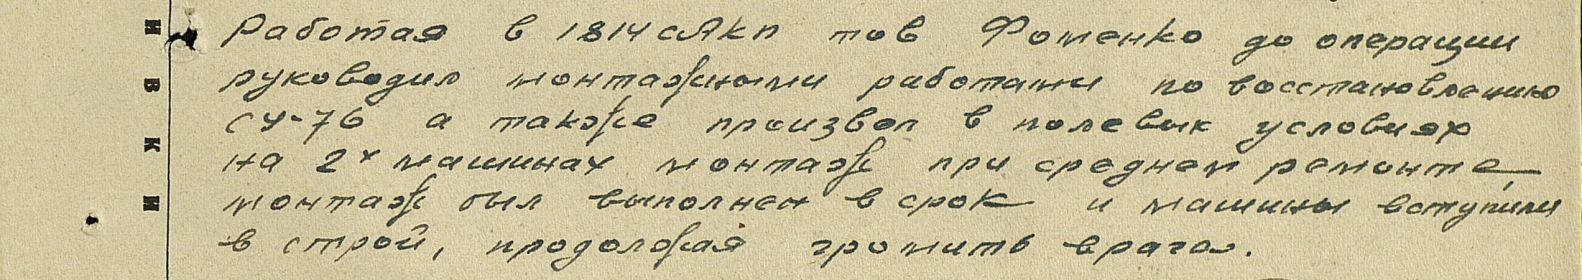 Работая в 1814 САКП тов Фоменко до операции
руководил монтажными работами по восстановлению
СУ-76 а также произвел в полевых условиях
на 2х машинах монтаж при среднем ремонте,
монтаж был выполнен в срок и машины вступили
в строй, продолжая громить врага.
И
В
К
И